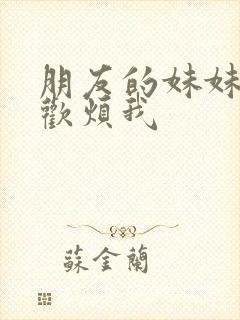 朋友的妹妹
歡煩我
蘇金蘭